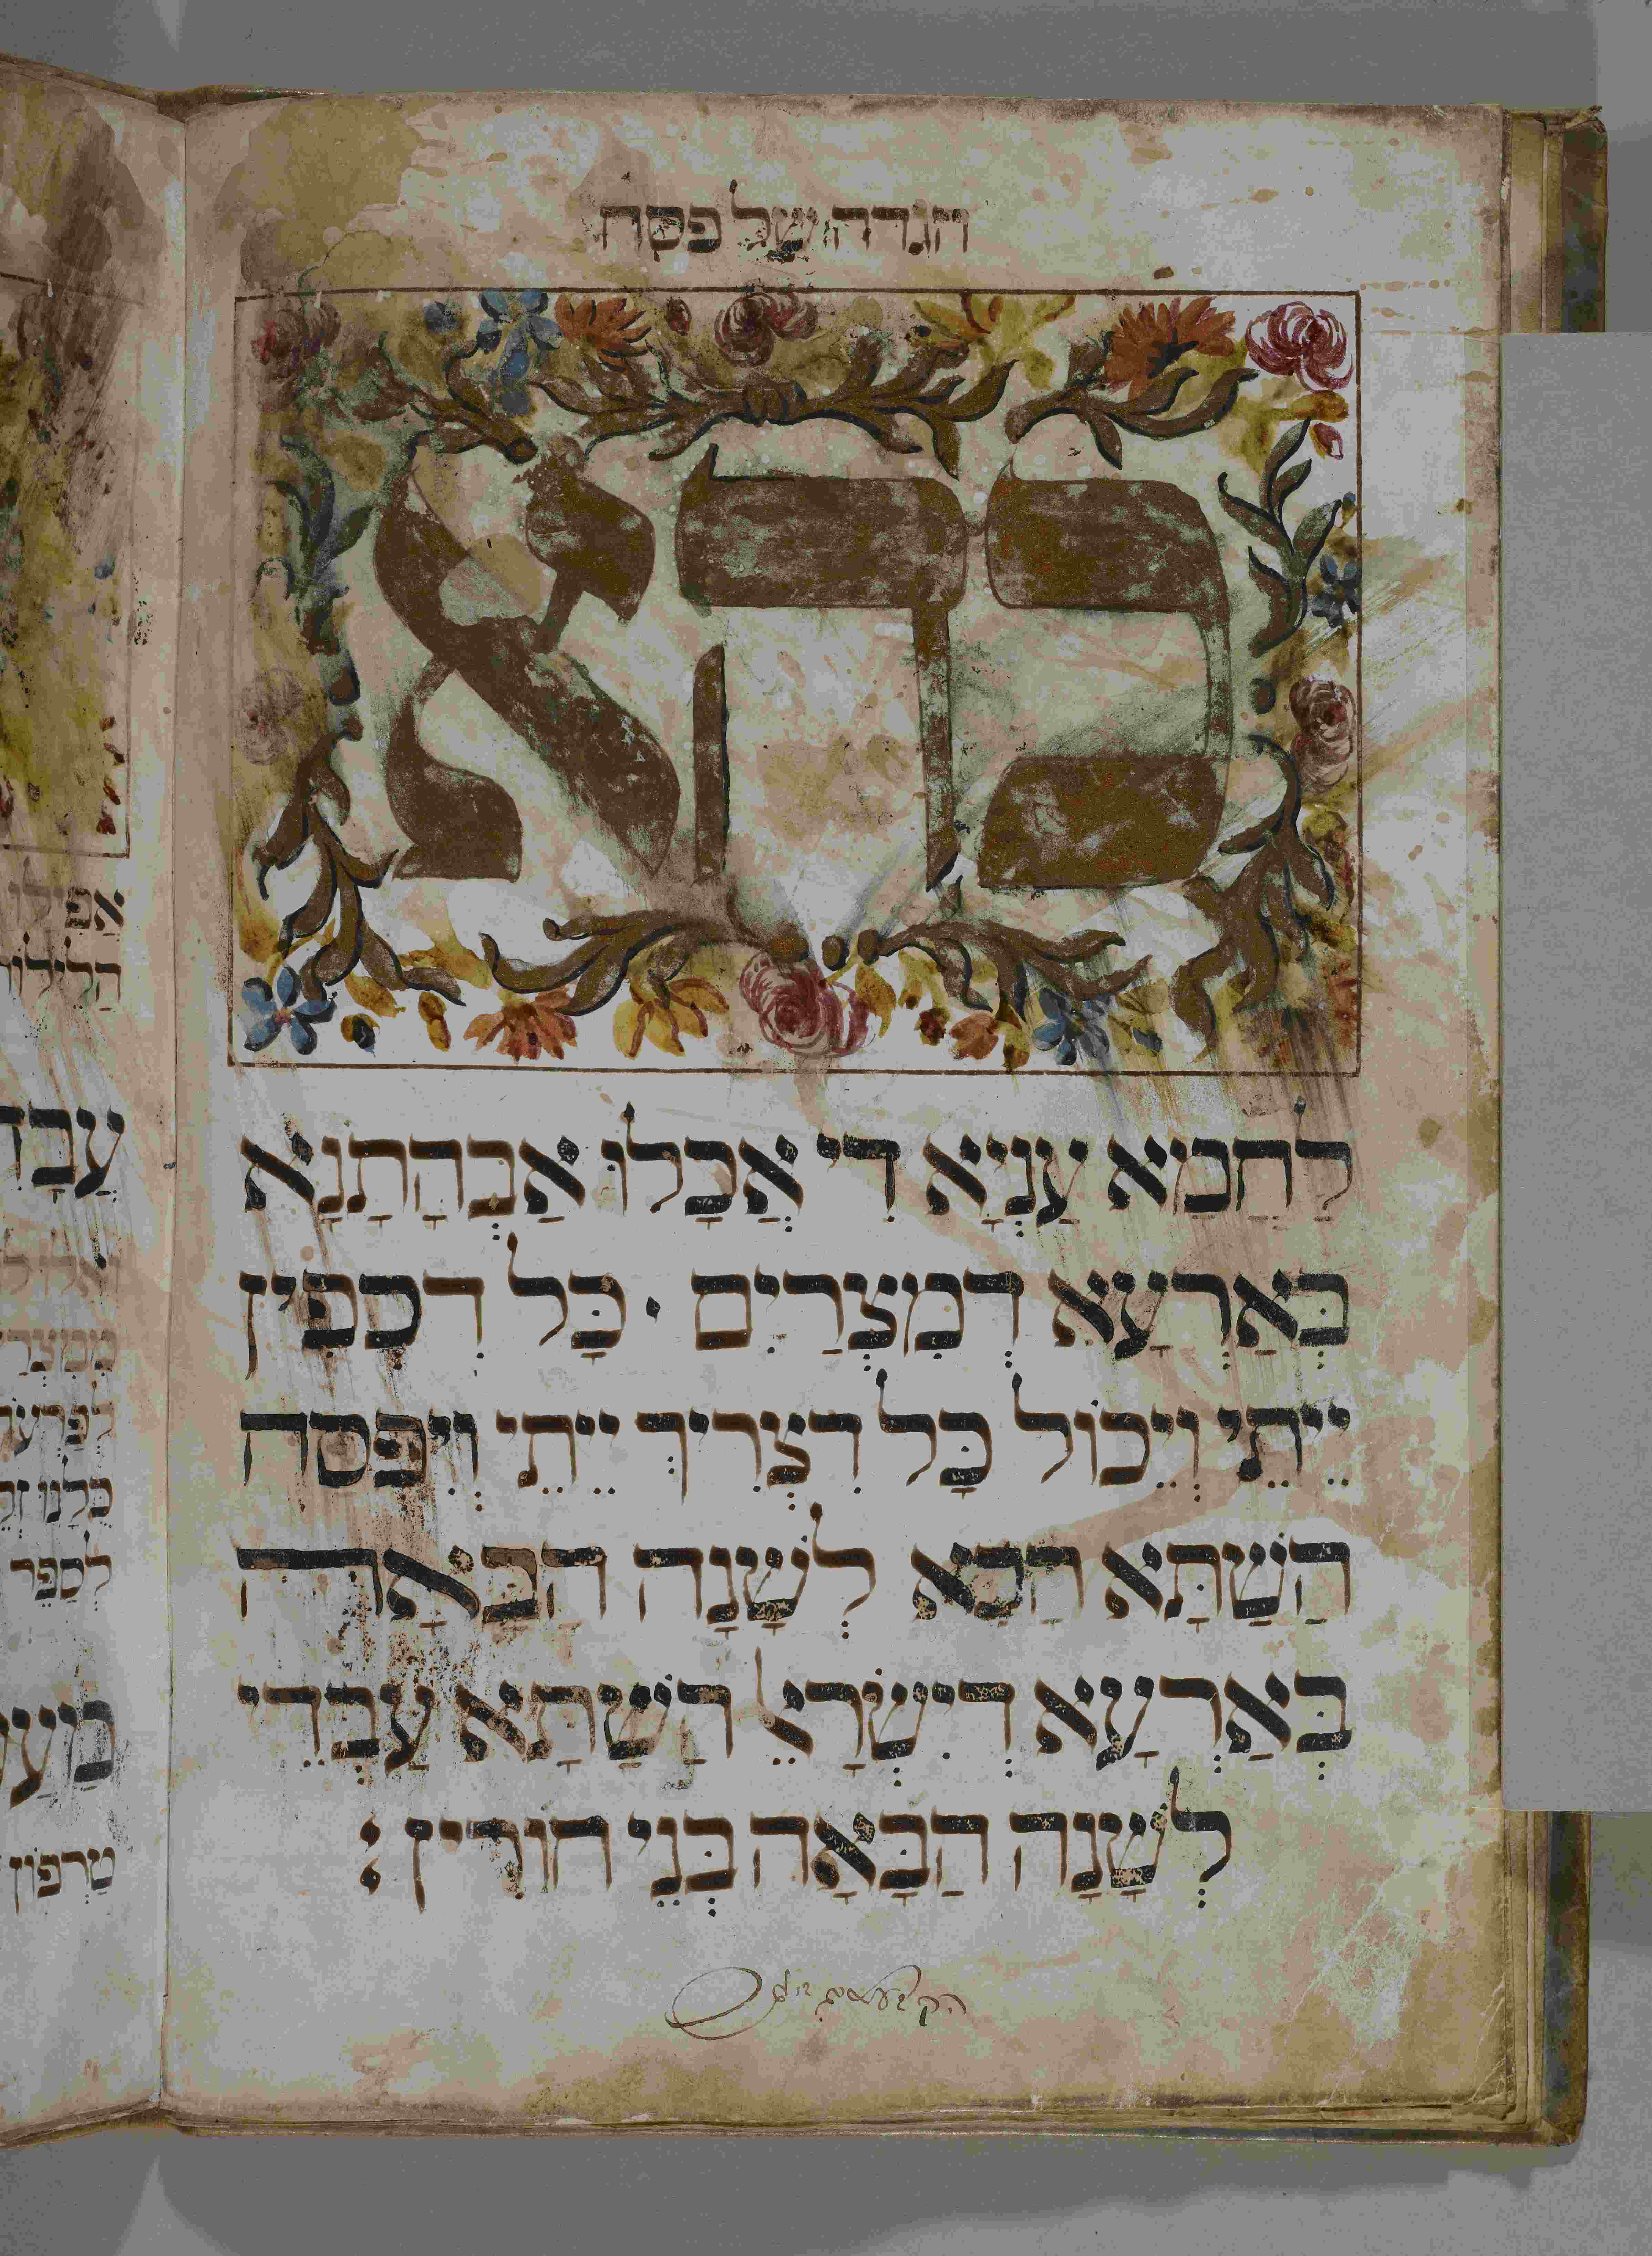 הגדה של פסח
כהא
לַחְמַא עַנְיָא דִי אֲכָלוּ אַבְהָתָנָא
בְּאַרְעָא דְמִצְרַיִם · כָּל דִכְפִין
יֵיתֵי וְיֵכוֹל כָּל דִצְרִיךְ יֵיתֵי וְיִפְסַח
הַשַׁתָּא הָכָא לְשָׁנָה הַבָּאָה
בְּאַרְעָא דְיִשְׂרָאֵל הָשַׁתָּא עַבְדֵי
לְשָׁנָה הַבָּאָה בְּנֵי חוֹרִין :
אפילו
הלילות
עֲבָד
ממצר
לפרעה
כלנו זק
לספר
מעש
טרפון